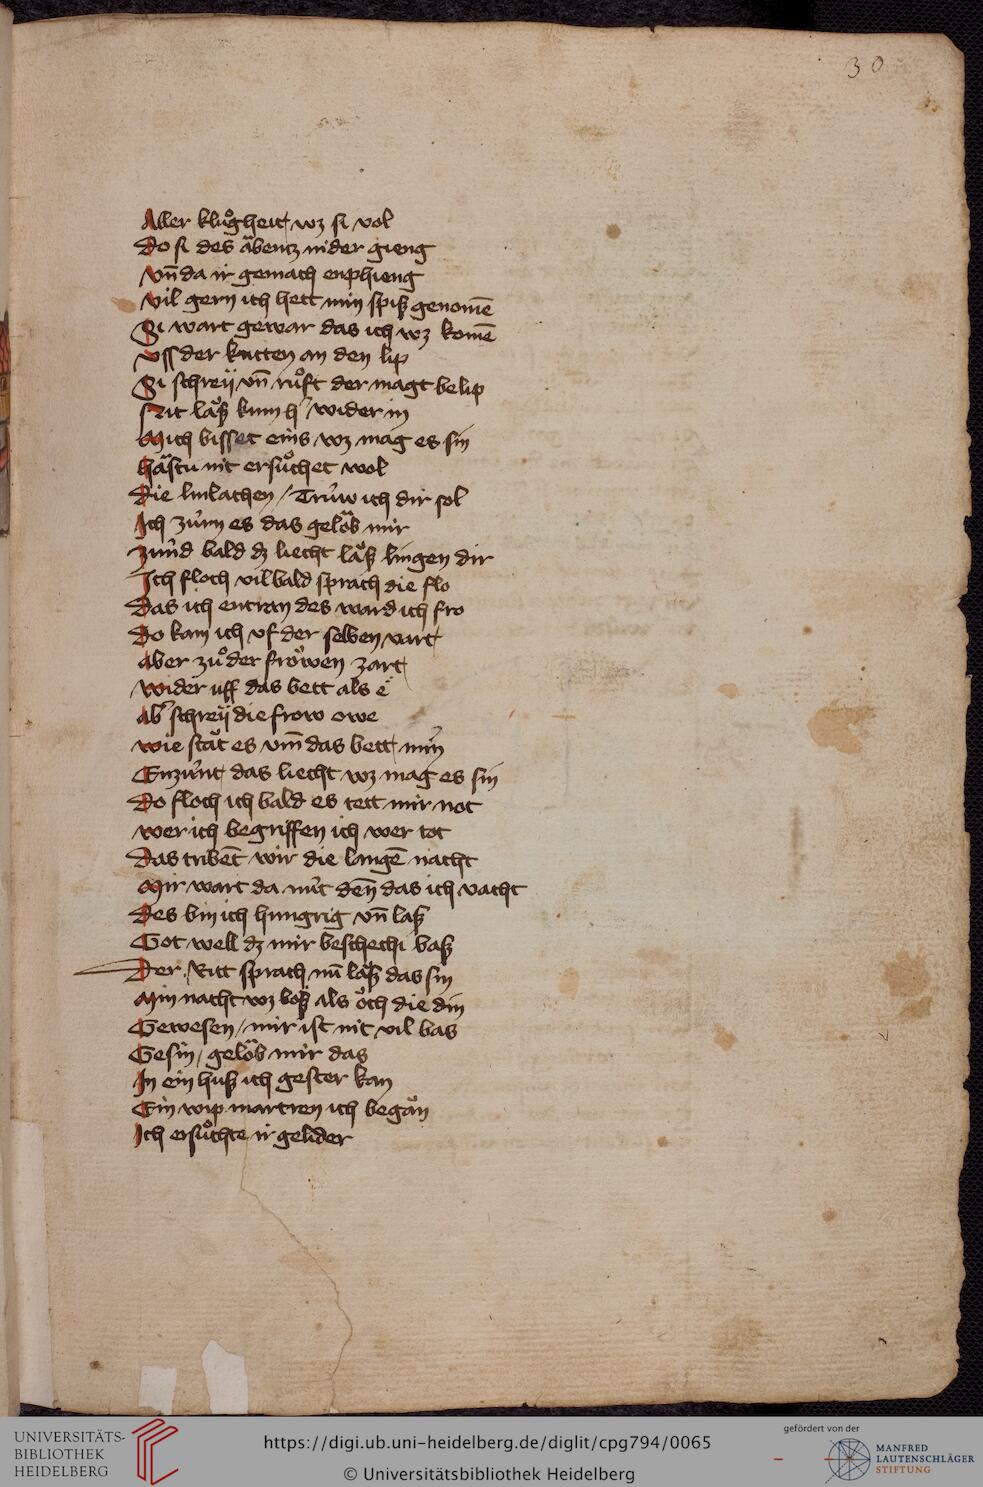 30
Aller kluͦgheit wz si vol
Do si des aͮbentz nider gieng
Vn̄ da ir gemach enphieng
Vil gern ich hett min spiß genom̄e
Si wart gewar das ich wz kom̄e
Vss der kutten an den lip
Si schreÿ vn̄ ruͦft der magt belip
Nit laͮß kum h' wider in
Mich bisset eins wz mag es sin
Haͮstu nit ersuͦchet wol
Die linlachen / Trúw ich dir sol
Ich zúrn es das geloͮb mir
Zúnd bald dz liecht laͮß lingen dir
Ich floch vil bald sprach die flo
Das ich entran des ward ich fro
Do kam ich vf der selben vart
Aber zuͦ der froͮwen zart
Wider uff das bett als e
Ab' schreÿ die frow owe
Wie staͮt es vm̄ das bett min
Enzúnt das liecht wz mag es sin
Do floch ich bald es tett mir not
Wer ich begriffen ich wer tot
Das tribēt wir die langē nacht
Mir wart da nút den̄ das ich vacht
Des bin ich hungrig vn̄ laß
Got well dz mir beschechi baß
Der Ritt sprach nū laͮß das sin
Min nacht wz boͤß als oͮch die din
Gewesen / mir ist nit vil bas
Gesin / geloͮb mir das
In ein huß ich gester kan
Ein wip martren ich begaͮn
Ich ersuͦchte ir gelider
UNIVERSITÄTS-
BIBLIOTHEK
HEIDELBERG
https://digi.ub.uni-heidelberg.de/diglit/cpg794/0065
© Universitätsbibliothek Heidelberg
gefördert von der
MANFRED
LAUTENSCHLÄGER
STIFTUNG